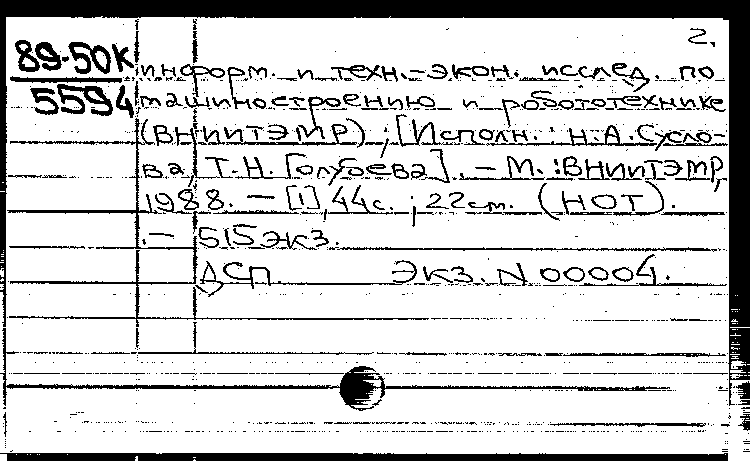 2.
89-50К
5594
информ. и техн.-экон. исслед. по
машиностроению и робототехнике
(ВНИИТЭМР) ; [Исполн.: Н.А. Сусло-
ва, Т.Н. Голубева]. – М. : ВНИИТЭМР,
1988. – [1], 44с. ; 22см. (НОТ).
. – 515 экз.
ДСП. Экз. N 00004.